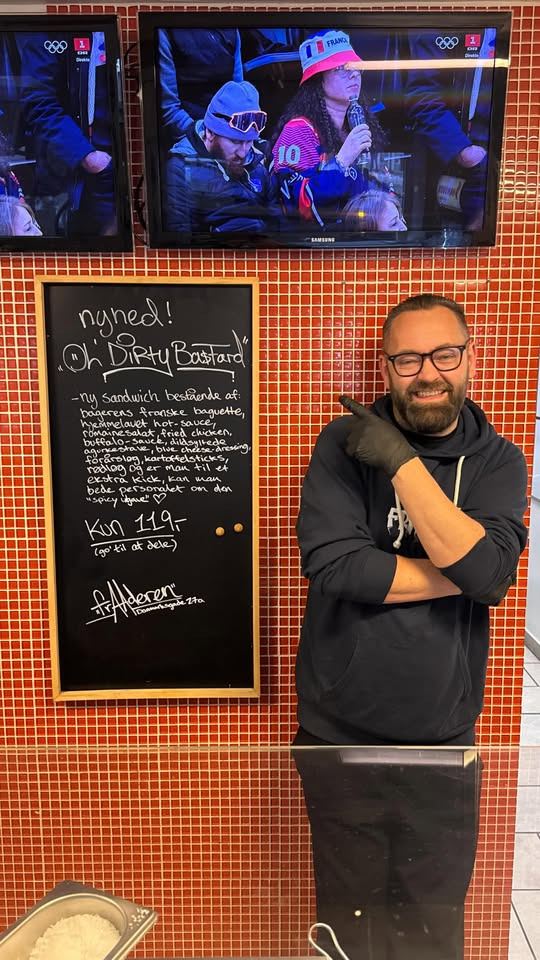 1
DR
Direkte
FRANCE
1
DR
Direkte
10
SAMSUNG
nyhed!
"Oh' DiRty Ba$tard"
- ny sandwich bestående af:
bagerens franske baguette,
hjemmelavet hot-sauce,
romainesalat, fried chicken,
buffalo-sauce, dildsyltede
agurkestave, blue cheese-dressing,
forårsløg, kartoffelsticks,
rødløg og er man til et
ekstra kick, kan man
bede personalet om den
"spicy ugave" ♡
Kun 119,-
(go' til at dele)
Danmarksgade 27a